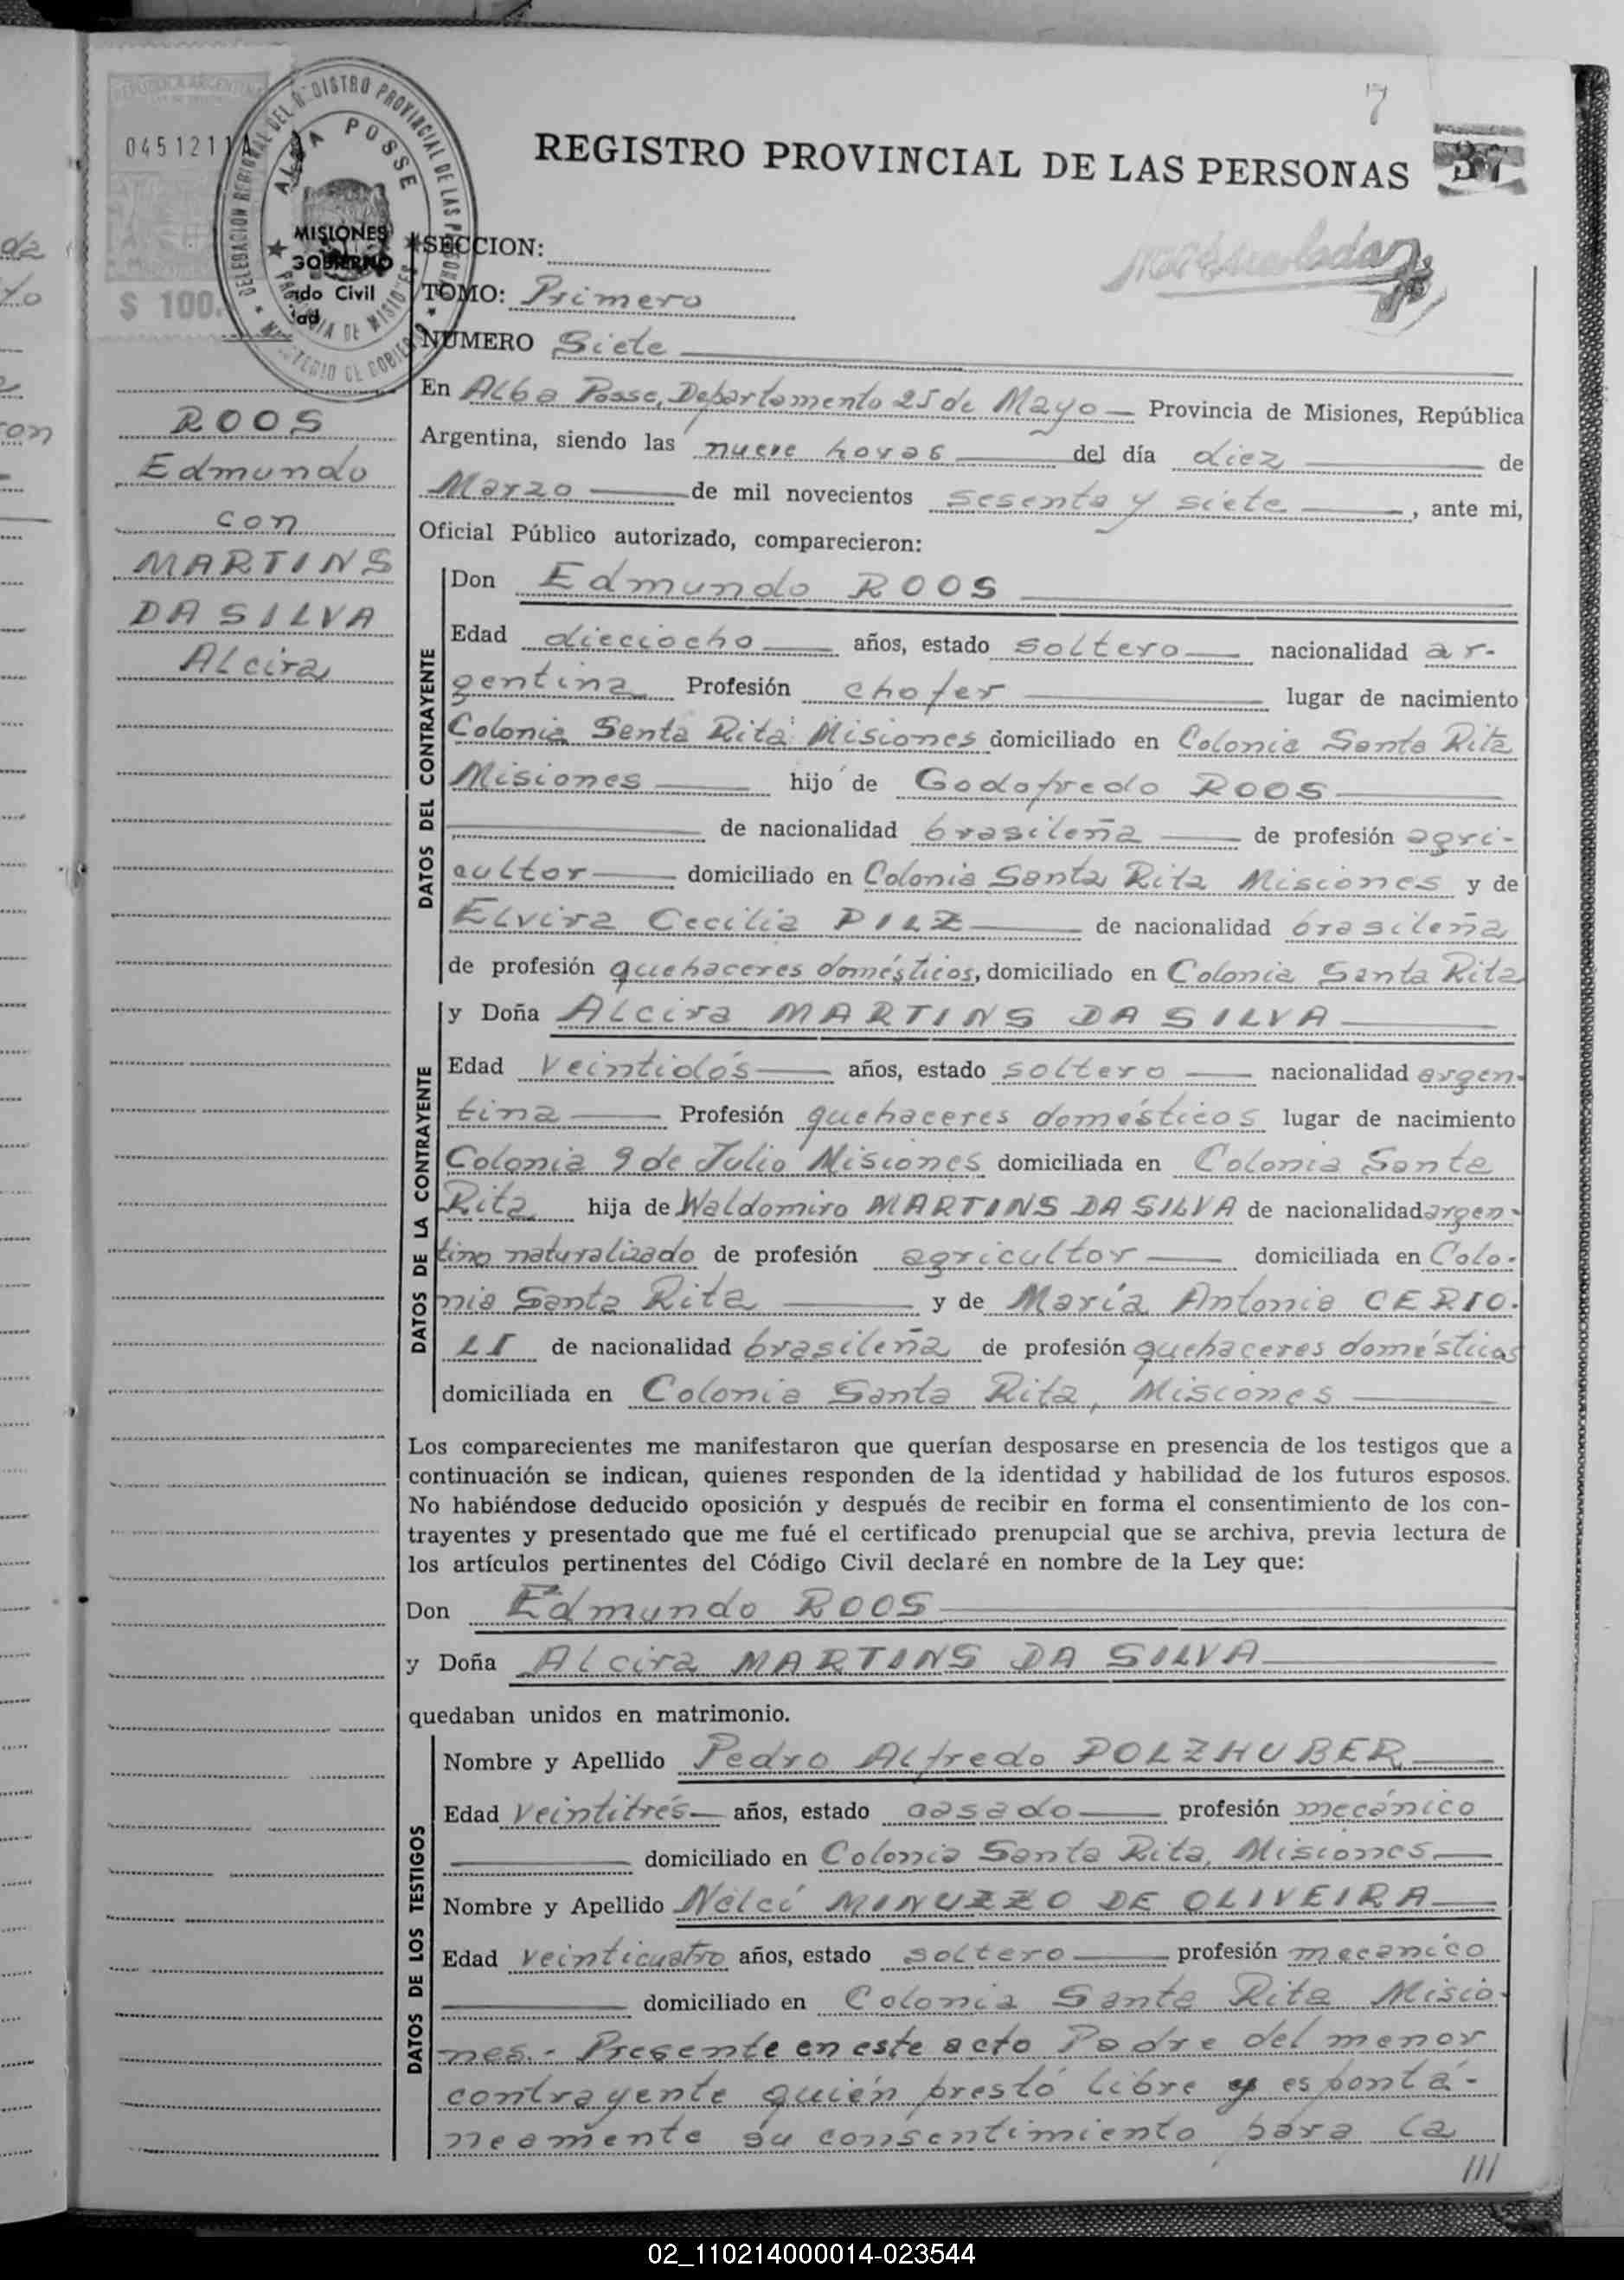 7
REGISTRO PROVINCIAL DE LAS PERSONAS
37
REPUBLICA ARGENTINA
0451211
DELEGACION REGIONAL DEL REGISTRO PROVINCIAL DE LAS PERSONAS
ALBA POSSE
PROVINCIA DE MISIONES
MISIONES
GOBIERNO
Civil
$ 100.
SECCION:
TOMO: Primero
NUMERO Siete
En Alba Posse, Departamento 25 de Mayo Provincia de Misiones, República
Argentina, siendo las nueve horas del día diez de
Marzo de mil novecientos sesenta y siete, ante mi,
Oficial Público autorizado, comparecieron:
ROOS
Edmundo
con
MARTINS
DA SILVA
Alcira
DATOS DEL CONTRAYENTE
Don Edmundo ROOS
Edad dieciocho años, estado soltero nacionalidad ar-
gentina Profesión chofer lugar de nacimiento
Colonia Santa Rita Misiones domiciliado en Colonia Santa Rita
Misiones hijo de Godofredo ROOS
de nacionalidad brasileña de profesión agri-
cultor domiciliado en Colonia Santa Rita Misiones y de
Elvira Cecilia PILZ de nacionalidad brasileña
de profesión quehaceres domésticos, domiciliado en Colonia Santa Rita
DATOS DE LA CONTRAYENTE
y Doña Alcira MARTINS DA SILVA
Edad veintidós años, estado soltero nacionalidad argen-
tina Profesión quehaceres domésticos lugar de nacimiento
Colonia 9 de Julio Misiones domiciliada en Colonia Santa
Rita hija de Waldomiro MARTINS DA SILVA de nacionalidad argen-
tino naturalizado de profesión agricultor domiciliada en Colo-
nia Santa Rita y de María Antonia CERIO-
LI de nacionalidad brasileña de profesión quehaceres domésticos
domiciliada en Colonia Santa Rita, Misiones
Los comparecientes me manifestaron que querían desposarse en presencia de los testigos que a
continuación se indican, quienes responden de la identidad y habilidad de los futuros esposos.
No habiéndose deducido oposición y después de recibir en forma el consentimiento de los con-
trayentes y presentado que me fué el certificado prenupcial que se archiva, previa lectura de
los artículos pertinentes del Código Civil declaré en nombre de la Ley que:
Don Edmundo ROOS
y Doña Alcira MARTINS DA SILVA
quedaban unidos en matrimonio.
DATOS DE LOS TESTIGOS
Nombre y Apellido Pedro Alfredo POLZHUBER
Edad veintitrés años, estado casado profesión mecánico
domiciliado en Colonia Santa Rita, Misiones
Nombre y Apellido Nelci MINUZZO DE OLIVEIRA
Edad veinticuatro años, estado soltero profesión mecánico
domiciliado en Colonia Santa Rita Misio-
nes.- Presente en este acto Padre del menor
contrayente quién prestó libre y espontá-
neamente su consentimiento para la
///
02_110214000014-023544